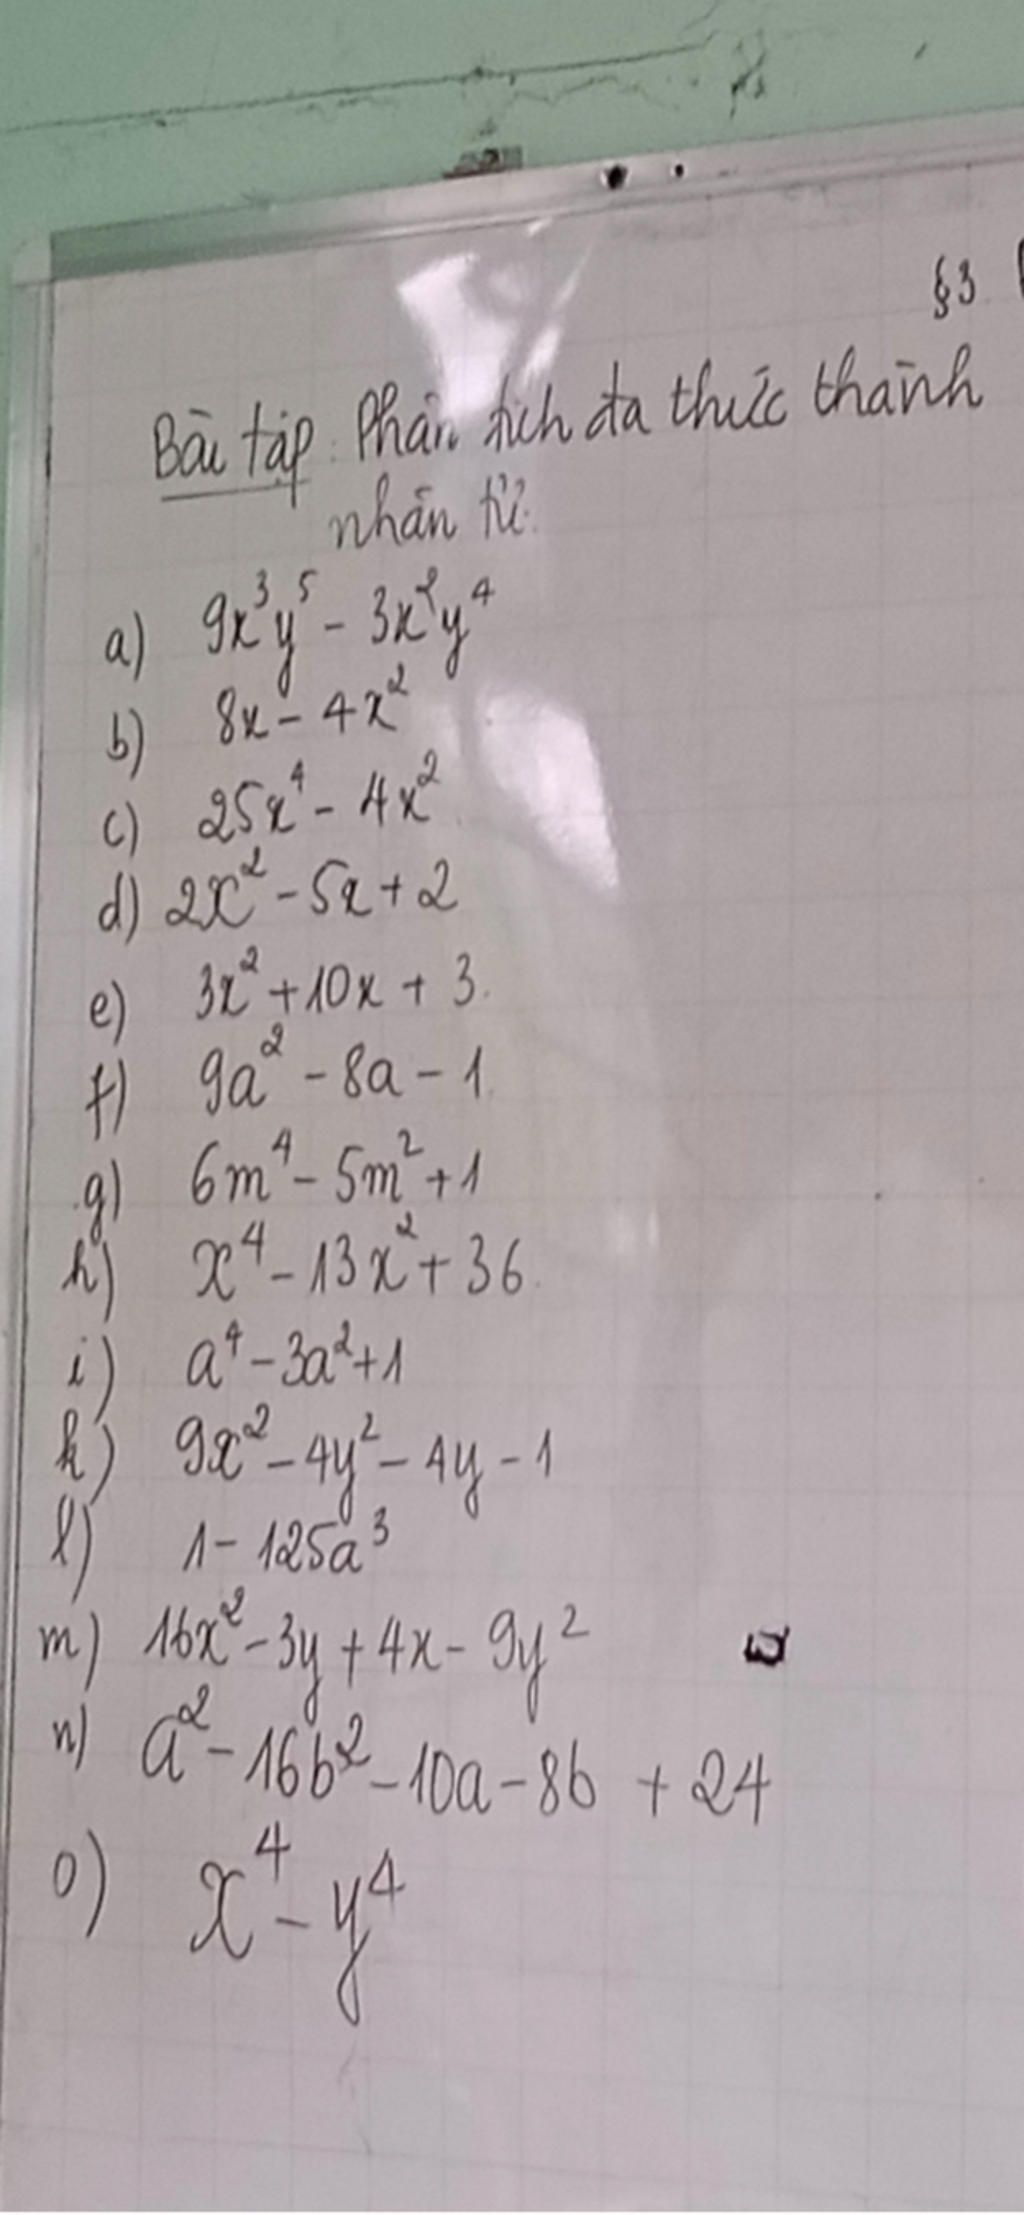 §3
Bài tập: Phân tích đa thức thành
nhân tử.
a) 9x³y⁵ - 3x²y⁴
b) 8x - 4x²
c) 25x⁴ - 4x²
d) 2x² - 5x + 2
e) 3x² + 10x + 3.
f) 9a² - 8a - 1
g) 6m⁴ - 5m² + 1
h) x⁴ - 13x² + 36.
i) a⁴ - 3a² + 1
k) 9x² - 4y² - 4y - 1
l) 1 - 125a³
m) 16x² - 3y + 4x - 9y²
n) a² - 16b² - 10a - 8b + 24
o) x⁴ - y⁴